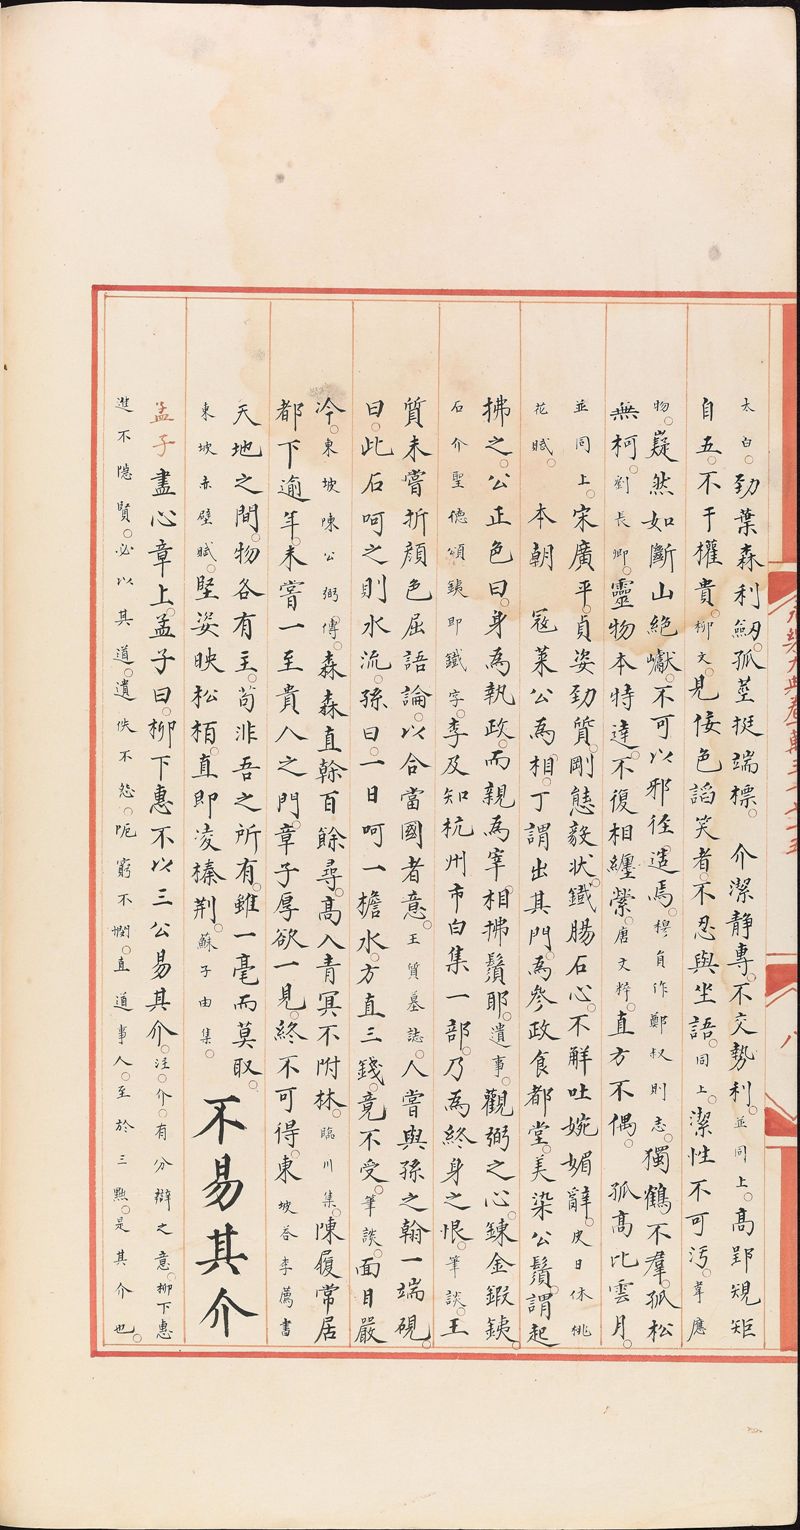 太白。勁葉森利劔。孤莖挺端標。　介潔静專。不交勢利。並同上。高郢規矩
自五。不干權貴。柳文。見佞色諂笑者。不忍與坐語。同上。潔性不可汚。韋應
物。嶷然如斷山絶巘。不可以邪徑遥焉。穆員作鄭叔則志。獨鶴不羣。孤松
無柯。劉長卿。靈物本特達。不復相纏縈。唐文粹。直方不偶。　孤高比雲月。
並同上。宋廣平。貞姿勁質。剛態毅状。鐵腸石心。不解吐婉媚辭。皮日休桃
花賦。　本朝　冦萊公為相。丁謂出其門。為參政食都堂。羙染公鬚。謂起
拂之。公正色曰。身為執政。而親為宰相拂鬚耶。遺事。觀弼之心。錬金鍜銕。
石介聖德頌銕即鐵字。李及知杭州市白集一部。乃為終身之恨。筆談。王
質未嘗折顔色屈語論。以合當國者意。王質墓誌。人嘗與孫之翰一端硯。
曰。此石呵之則水流。孫曰。一日呵一檐水。方直三錢。竟不受。筆談。面目嚴
冷。東坡陳公弼傳。森森直榦百餘尋。高入青冥不附林。臨川集。陳履常居
都下逾年。未嘗一至貴人之門。章子厚欲一見。終不可得。東坡荅李廌書
天地之間。物各有主。茍非吾之所有。雖一毫而莫取。
東坡赤壁賦。堅姿映松栢。直節凌榛荆。蘇子由集。
不易其介
孟子盡心章上。孟子曰。柳下惠不以三公易其介。注。介。有分辯之意。柳下惠
進不隱賢。必以其道。遺佚不怨。阨窮不憫。直道事人。至於三黜。是其介也。
永樂大典卷
八